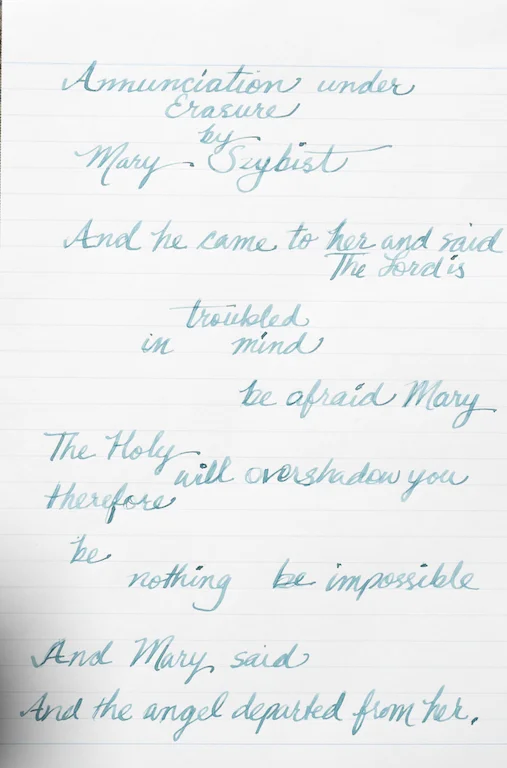 Annunciation under
Erasure
by
Mary Szybist
And he came to her and said
The Lord is
troubled
in mind
be afraid Mary
The Holy
will overshadow you
therefore
be
nothing be impossible
And Mary said
And the angel departed from her.